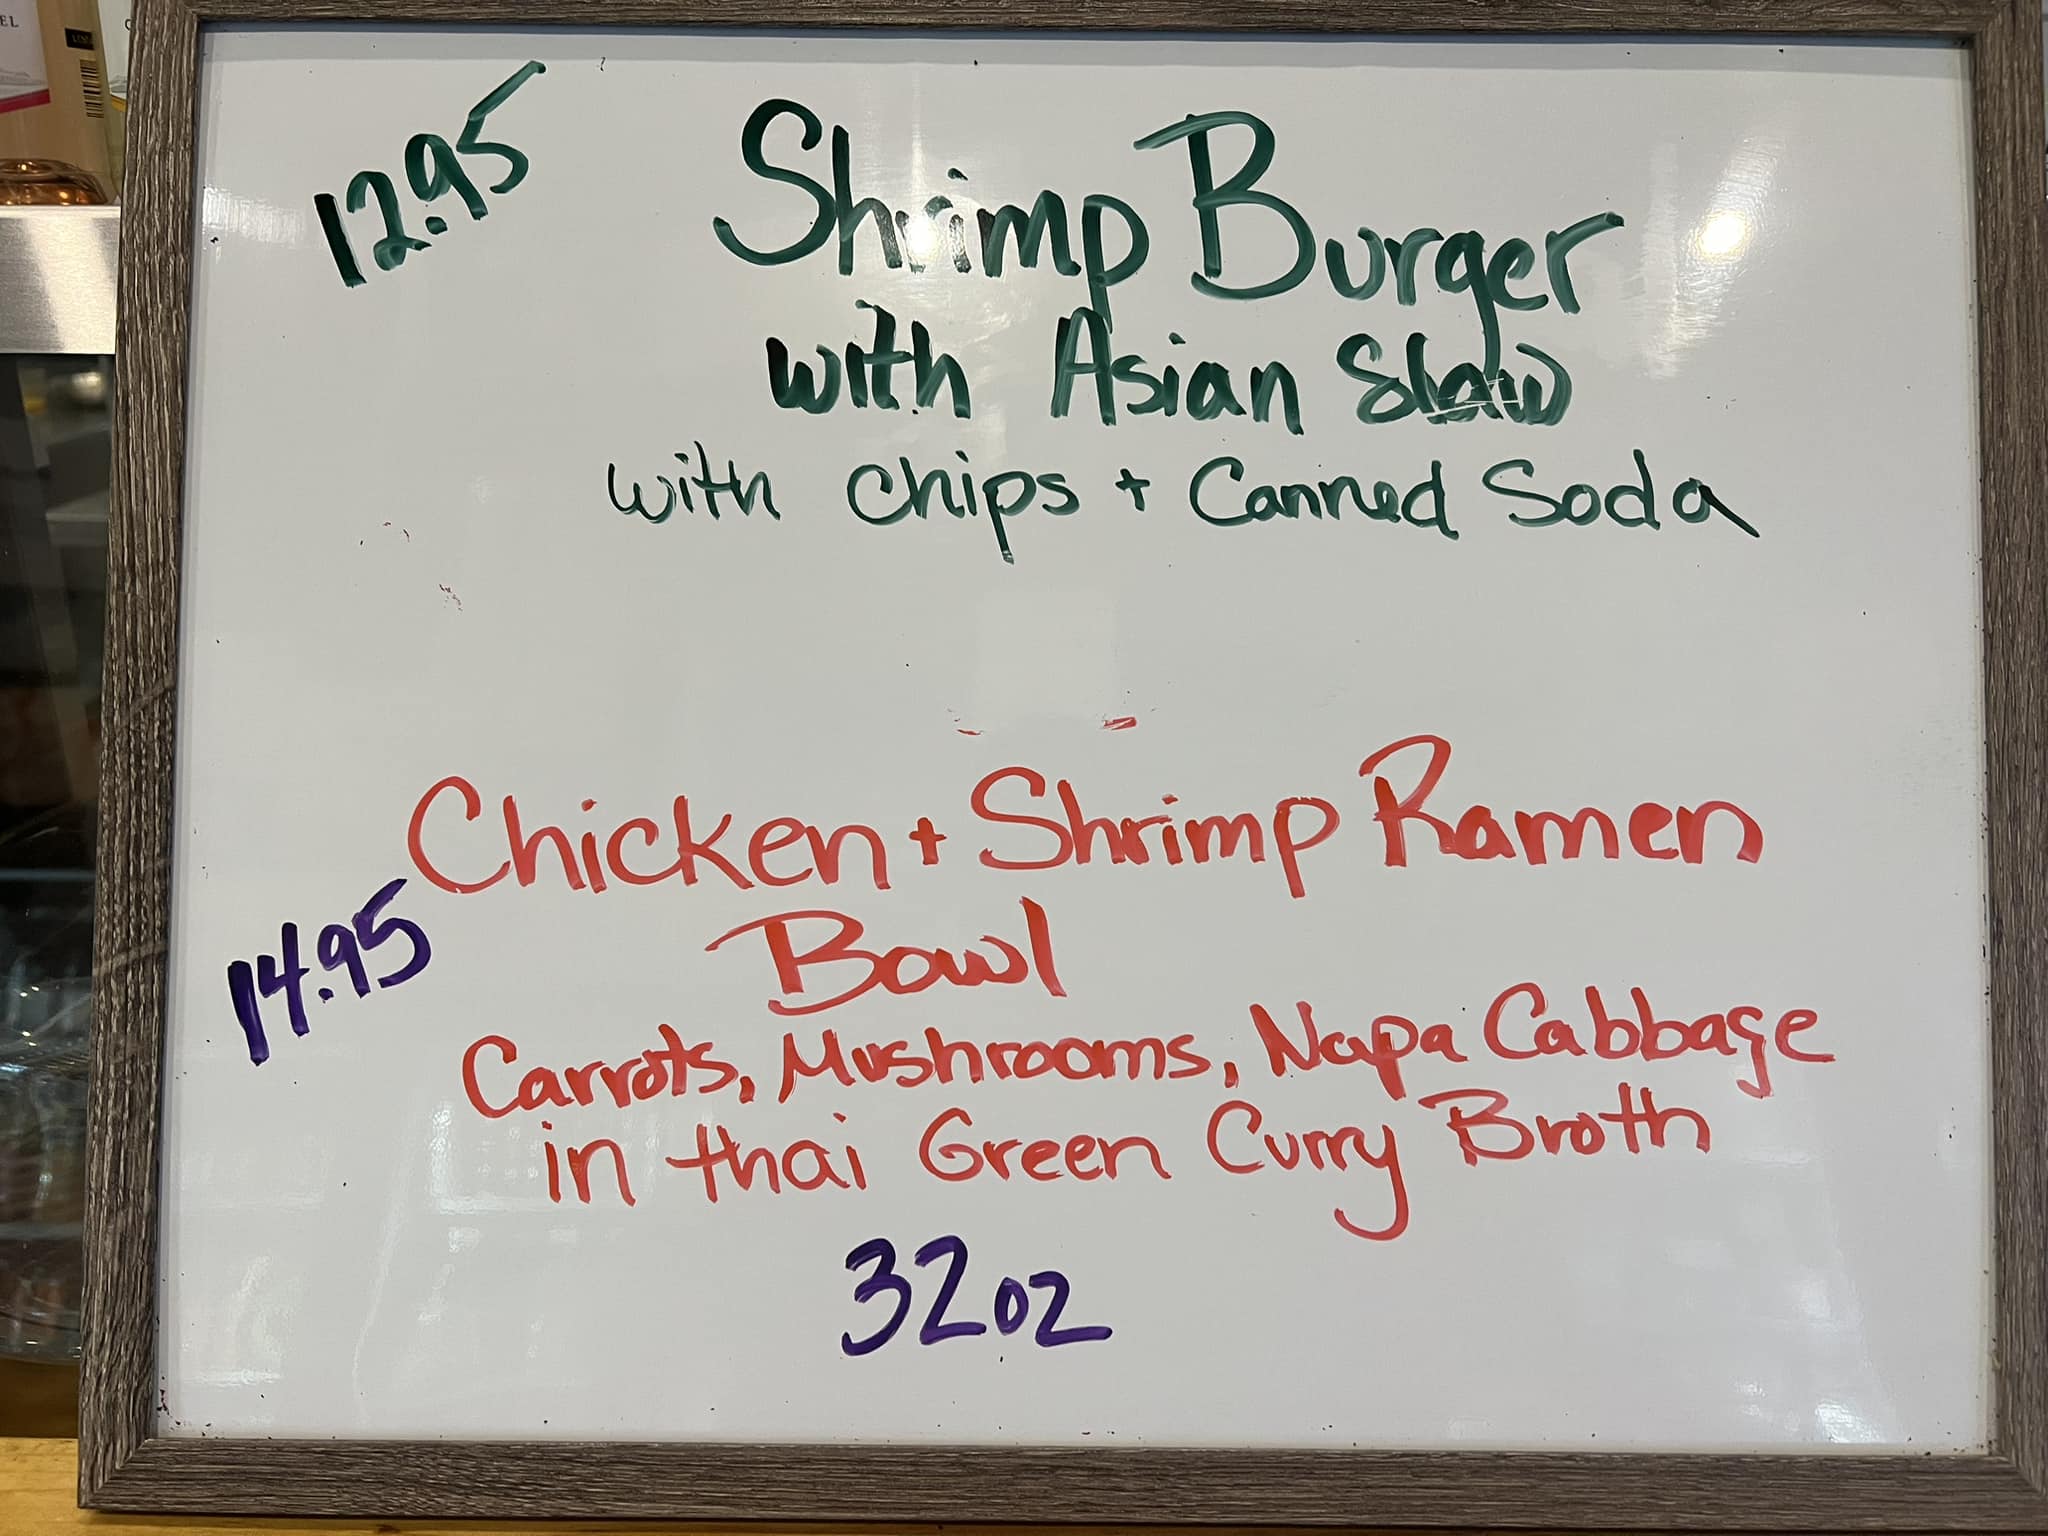 12.95
Shrimp Burger
with Asian Slaw
with chips + Canned Soda
Chicken + Shrimp Ramen
Bowl
14.95
Carrots, Mushrooms, Napa Cabbage
in thai Green Curry Broth
32oz